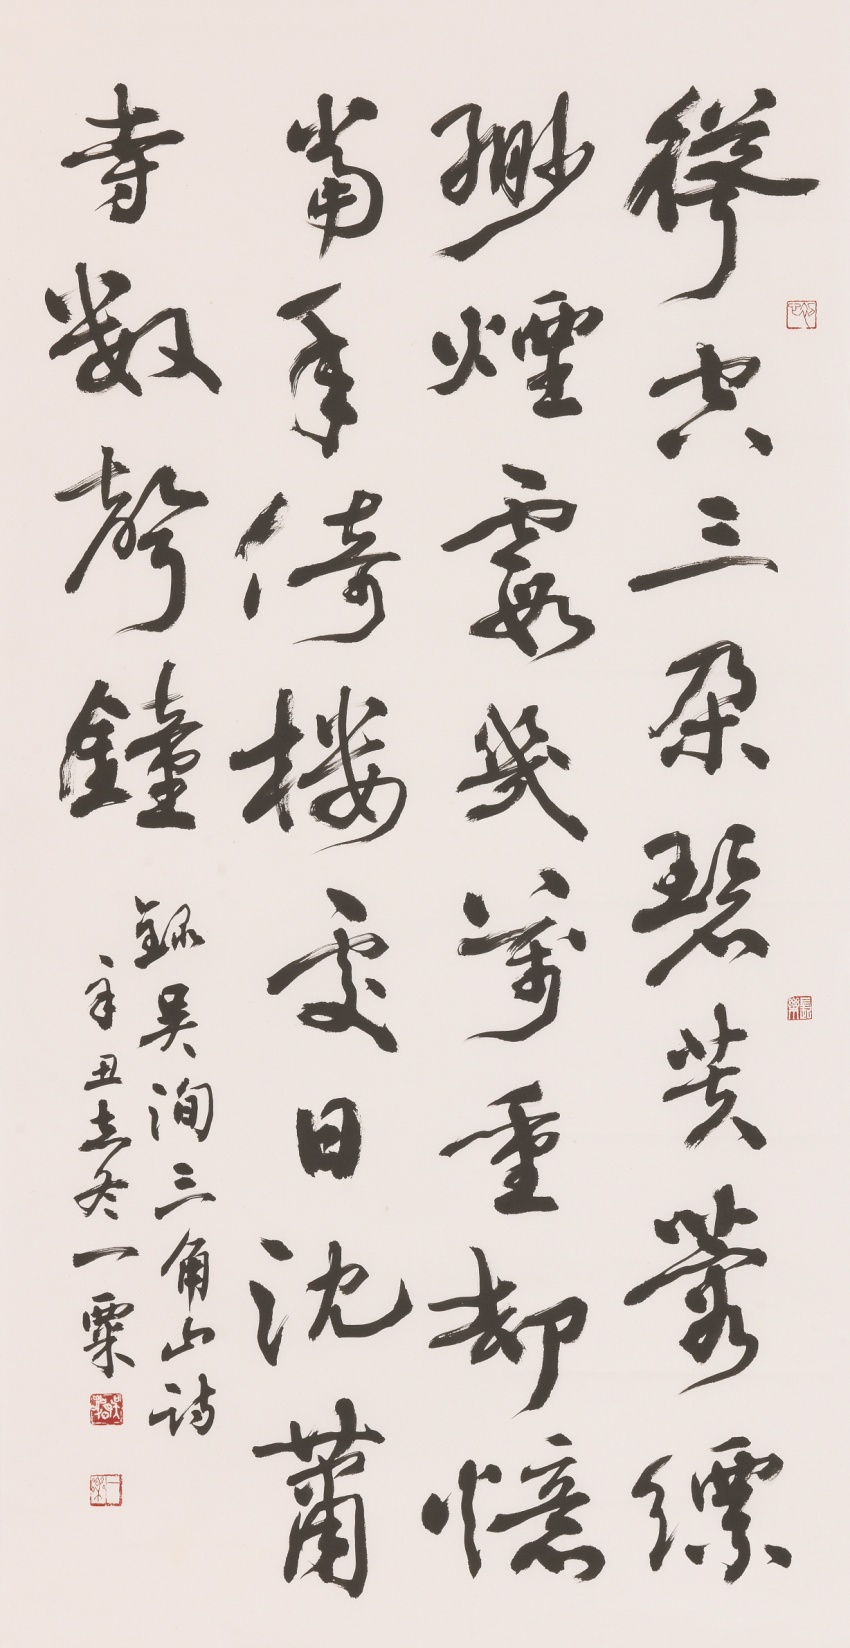 聳空三朶碧芙蓉縹
緲煙霞幾萬重却憶
當年倚樓處日沈蕭
寺數聲鐘
錄吳洵三角山詩
辛丑立冬一粟